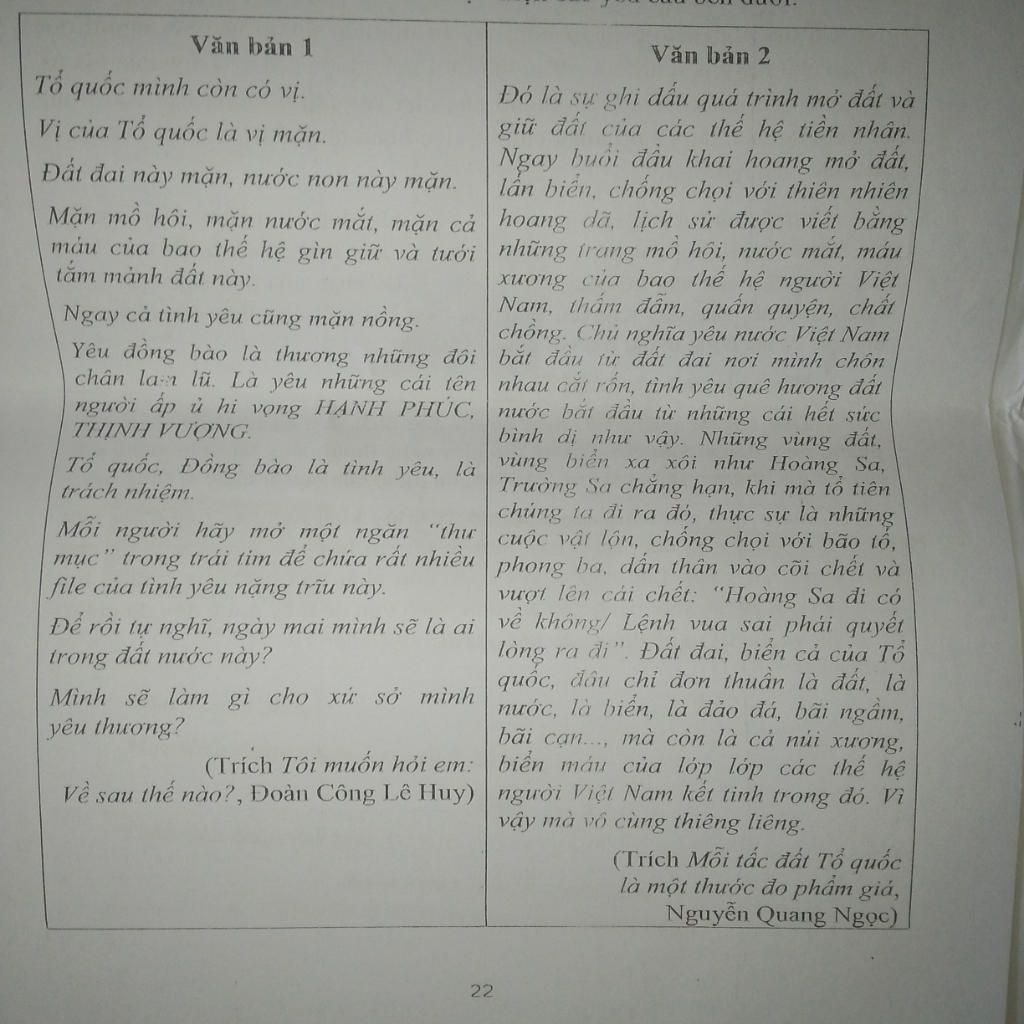 yêu cầu bên dưới.
Văn bản 1
Tổ quốc mình còn có vị.
Vị của Tổ quốc là vị mặn.
Đất đai này mặn, nước non này mặn.
Mặn mồ hôi, mặn nước mắt, mặn cả
máu của bao thế hệ gìn giữ và tưới
tắm mảnh đất này.
Ngay cả tình yêu cũng mặn nồng.
Yêu đồng bào là thương những đôi
chân lam lũ. Là yêu những cái tên
người ấp ủ hi vọng HẠNH PHÚC,
THỊNH VƯỢNG.
Tổ quốc, Đồng bào là tình yêu, là
trách nhiệm.
Mỗi người hãy mở một ngăn “thư
mục” trong trái tim để chứa rất nhiều
file của tình yêu nặng trĩu này.
Để rồi tự nghĩ, ngày mai mình sẽ là ai
trong đất nước này?
Mình sẽ làm gì cho xứ sở mình
yêu thương?
(Trích Tôi muốn hỏi em:
Về sau thế nào?, Đoàn Công Lê Huy)
Văn bản 2
Đó là sự ghi dấu quá trình mở đất và
giữ đất của các thế hệ tiền nhân.
Ngay buổi đầu khai hoang mở đất,
lấn biển, chống chọi với thiên nhiên
hoang dã, lịch sử được viết bằng
những trang mồ hôi, nước mắt, máu
xương của bao thế hệ người Việt
Nam, thấm đẫm, quấn quyện, chất
chồng. Chủ nghĩa yêu nước Việt Nam
bắt đầu từ đất đai nơi mình chôn
nhau cắt rốn, tình yêu quê hương đất
nước bắt đầu từ những cái hết sức
bình dị như vậy. Những vùng đất,
vùng biển xa xôi như Hoàng Sa,
Trường Sa chẳng hạn, khi mà tổ tiên
chúng ta đi ra đó, thực sự là những
cuộc vật lộn, chống chọi với bão tố,
phong ba, dấn thân vào cõi chết và
vượt lên cái chết: “Hoàng Sa đi có
về không/ Lệnh vua sai phái quyết
lòng ra đi”. Đất đai, biển cả của Tổ
quốc, đâu chỉ đơn thuần là đất, là
nước, là biển, là đảo đá, bãi ngầm,
bãi cạn..., mà còn là cả núi xương,
biển máu của lớp lớp các thế hệ
người Việt Nam kết tinh trong đó. Vì
vậy mà vô cùng thiêng liêng.
(Trích Mỗi tấc đất Tổ quốc
là một thước đo phẩm giá,
Nguyễn Quang Ngọc)
22